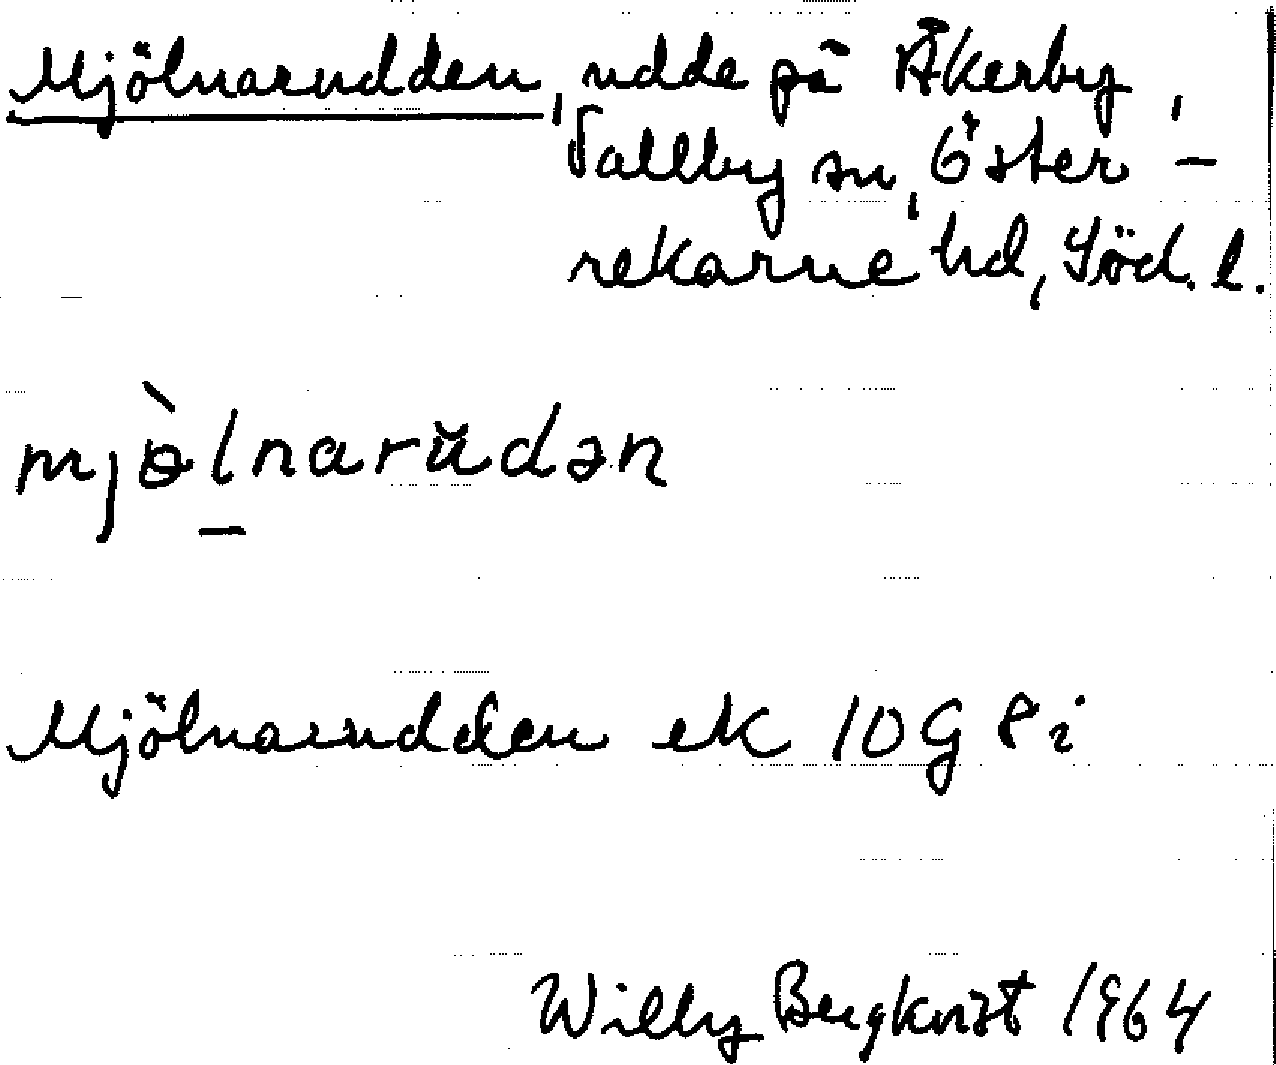 Mjölnarudden, udde på Åkerby,
Vallby sn, Öster-
rekarne hd, Söd. l.
mjə̀lnarŭdən
Mjölnarudden ek 10G 8i
Willy Bergkvist 1964